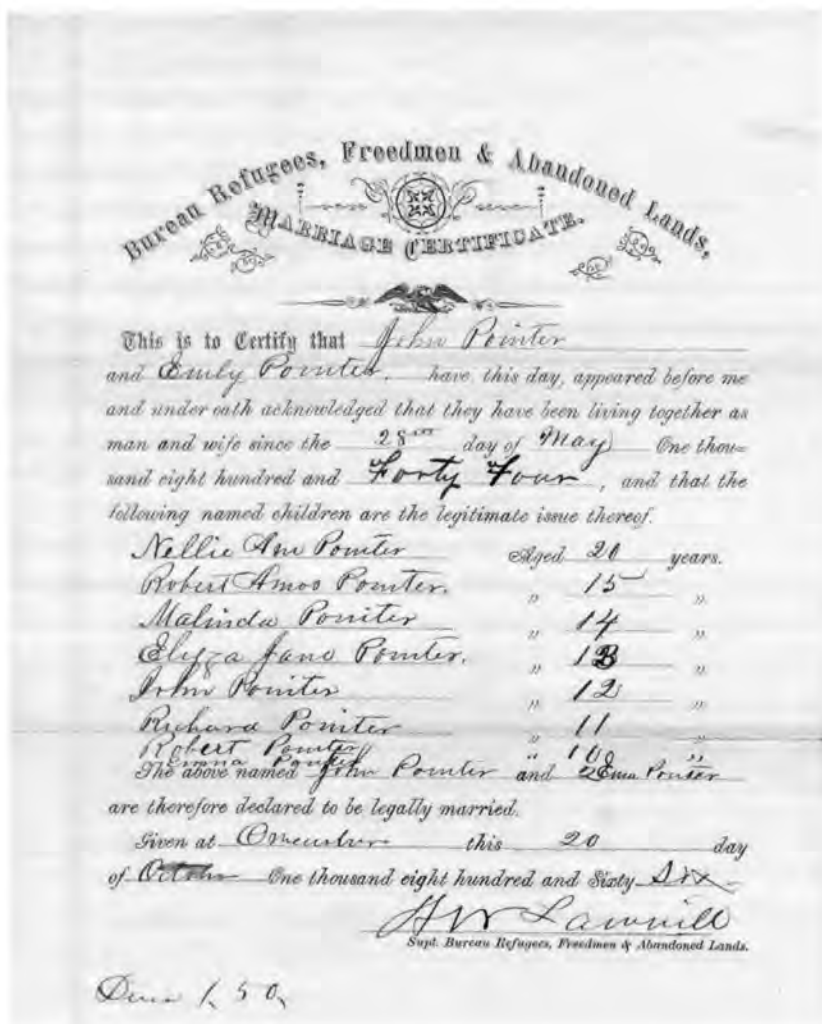 Bureau Refugees, Freedmen & Abandoned Lands,
MARRIAGE CERTIFICATE.
This is to Certify that John Pointer
and Emily Pointer. have this day, appeared before me
and under oath acknowledged that they have been living together as
man and wife since the 28th day of May One thou=
sand eight hundred and Forty Four, and that the
following named children are the legitimate issue thereof.
Nellie Ann Pointer Aged 20 years.
Robert Amos Pointer. " 15 "
Malinda Pointer " 14 "
Elyza Jane Pointer. " 13 "
John Pointer " 12 "
Richard Pointer " 11 "
Robert Pointer " 10 "
Emma Pointer
The above named John Pointer and Pointer
are therefore declared to be legally married.
Given at this 20 day
of October One thousand eight hundred and Sixty Six
H W
Supt. Bureau Refugees, Freedmen & Abandoned Lands.